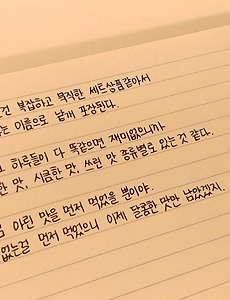 건 복잡하고 묵직한 세트상품같아서
는 이름으로 낱개 포장된다.
하루들이 다 똑같으면 재미없으니까
한 맛, 시큼한 맛, 쓰린 맛 종류별로 있는 것 같다.
아린 맛을 먼저 먹었을 뿐이야.
없는걸 먼저 먹었으니 이제 달콤한 맛만 남았겠지.